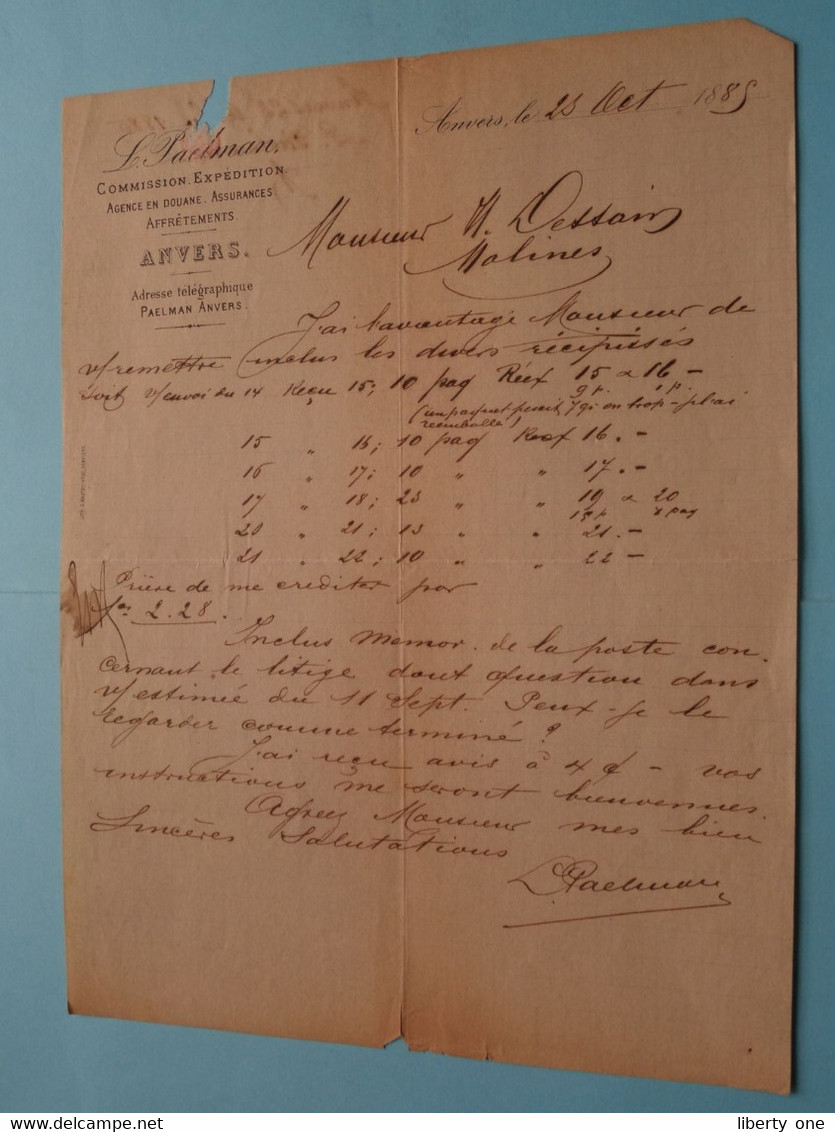 L. Paelman,
COMMISSION. EXPÉDITION.
AGENCE EN DOUANE. ASSURANCES
AFFRÊTEMENTS
ANVERS.
Adresse télégraphique
PAELMAN ANVERS.
Anvers, le 23 Oct 1885
Monsieur H. Dessain
Malines
J'ai l'avantage Monsieur de
v/remettre inclus les divers récipissés
soit v/envoi du 14 Reçu 15; 10 paq Réex 15 & 16 -
9 p. 1 p.
(un paquet pesait 7 gr en trop - j'ai
remballé!)
15 " 16; 10 paq Reex 16. -
16 " 17; 10 " " 17. -
17 " 18; 23 " " 19 & 20
15 p
20 " 21; 13 " " 21. -
21 " 22; 10 " " 22 -
Prière de me crediter par
frs 2.28.
Inclus memor. de la poste con-
cernant le litige dont question dans
v/estimée du 11 Sept. Peux-je le
regarder comme terminé?
J'ai reçu avis à 4 - vos
instructions me seront bienvenues.
Agréez Monsieur mes bien
Sincères Salutations
L Paelman
liberty one